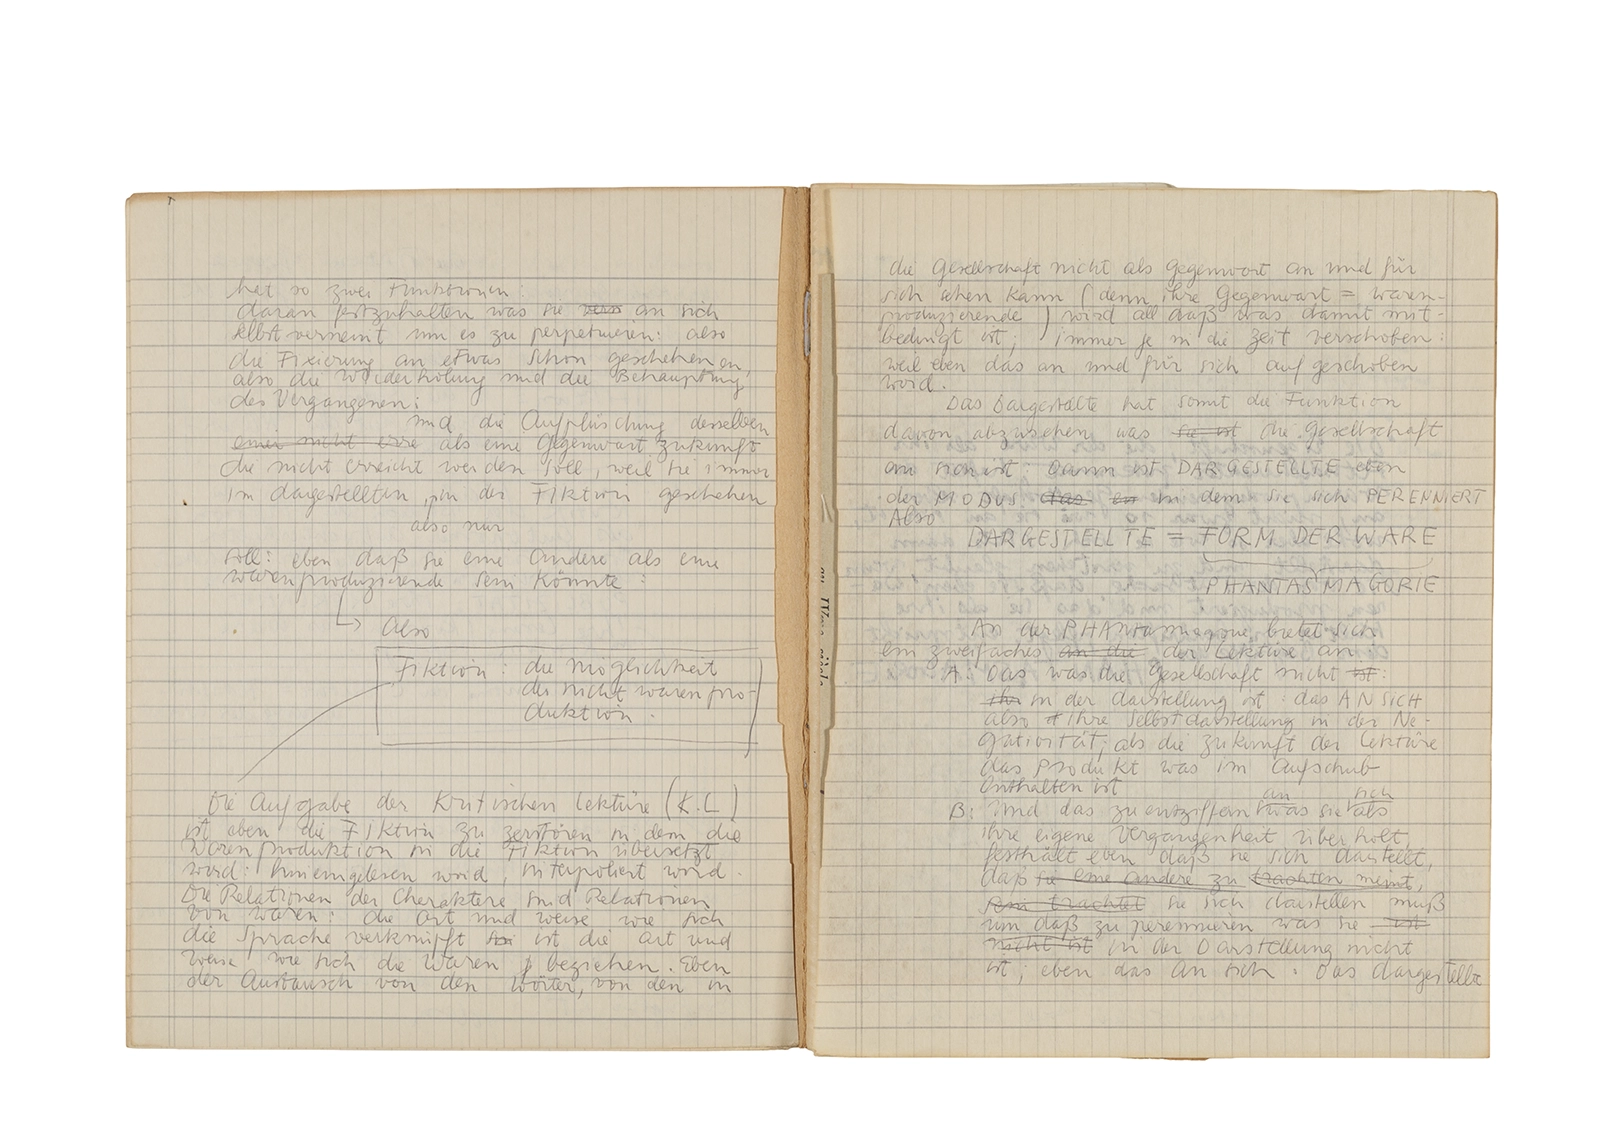 hat so zwei Funktionen:
daran festzuhalten was sie an sich
selbst verneint um es zu perpetuieren: also
die Fixierung an etwas schon geschehenen,
also die Wiederholung und die Behauptung
des Vergangenen:
und die Auflöschung desselben
einer nicht als eine Gegenwart zukunft
die nicht erreicht werden soll, weil sie immer
im dargestellten, in der Fiktion geschehen
also nur
soll: eben daß sie eine andere als eine
warenproduzierende sein könnte:
Also
Fiktion: die Möglichkeit
der nicht warenpro-
duktion.
Die Aufgabe der Kritischen Lektüre (K.L)
ist eben die Fiktion zu zerstören in dem die
Warenproduktion in die Fiktion übersetzt
wird: hineingelesen wird, interpoliert wird.
Die Relationen der Charaktere sind Relationen
von Waren: die Art und weise wie sich
die Sprache verknüpft ist die Art und
weise wie sich die Waren beziehen. Eben
der Austausch von den Wörter, von den in
die Gesellschaft nicht als Gegenwart an und für
sich sehen kann (denn ihre Gegenwart = waren-
produzierende) wird all daß was damit mit-
bedingt ist; immer je in die Zeit verschoben:
weil eben das an und für sich aufgeschoben
wird.
Das Dargestellte hat somit die Funktion
davon abzusehen was sie ist die Gesellschaft
an sich ist: Dann ist DARGESTELLTE eben
der MODUS das in dem sie sich PERENNIERT
Also
DARGESTELLTE = FORM DER WARE
PHANTASMAGORIE
An der PHAntasmagorie bietet sich
ein zweifaches an die der Lektüre an
A: Das was die Gesellschaft nicht ist:
in der darstellung ist: das AN SICH
also ihre Selbstdarstellung in der Ne-
gativität, als die zukunft der Lektüre
das Produkt was im Aufschub
enthalten ist
an sich
B: Und das zu entziffern was sie als
ihre eigene Vergangenheit überholt,
festhält eben daß sie sich darstellt,
daß sie eine andere zu trachten meint,
sein trachtet sie sich darstellen muß
um daß zu perennieren was sie ist
nicht ist in der Darstellung nicht
ist; eben das An sich. Das dargestellte